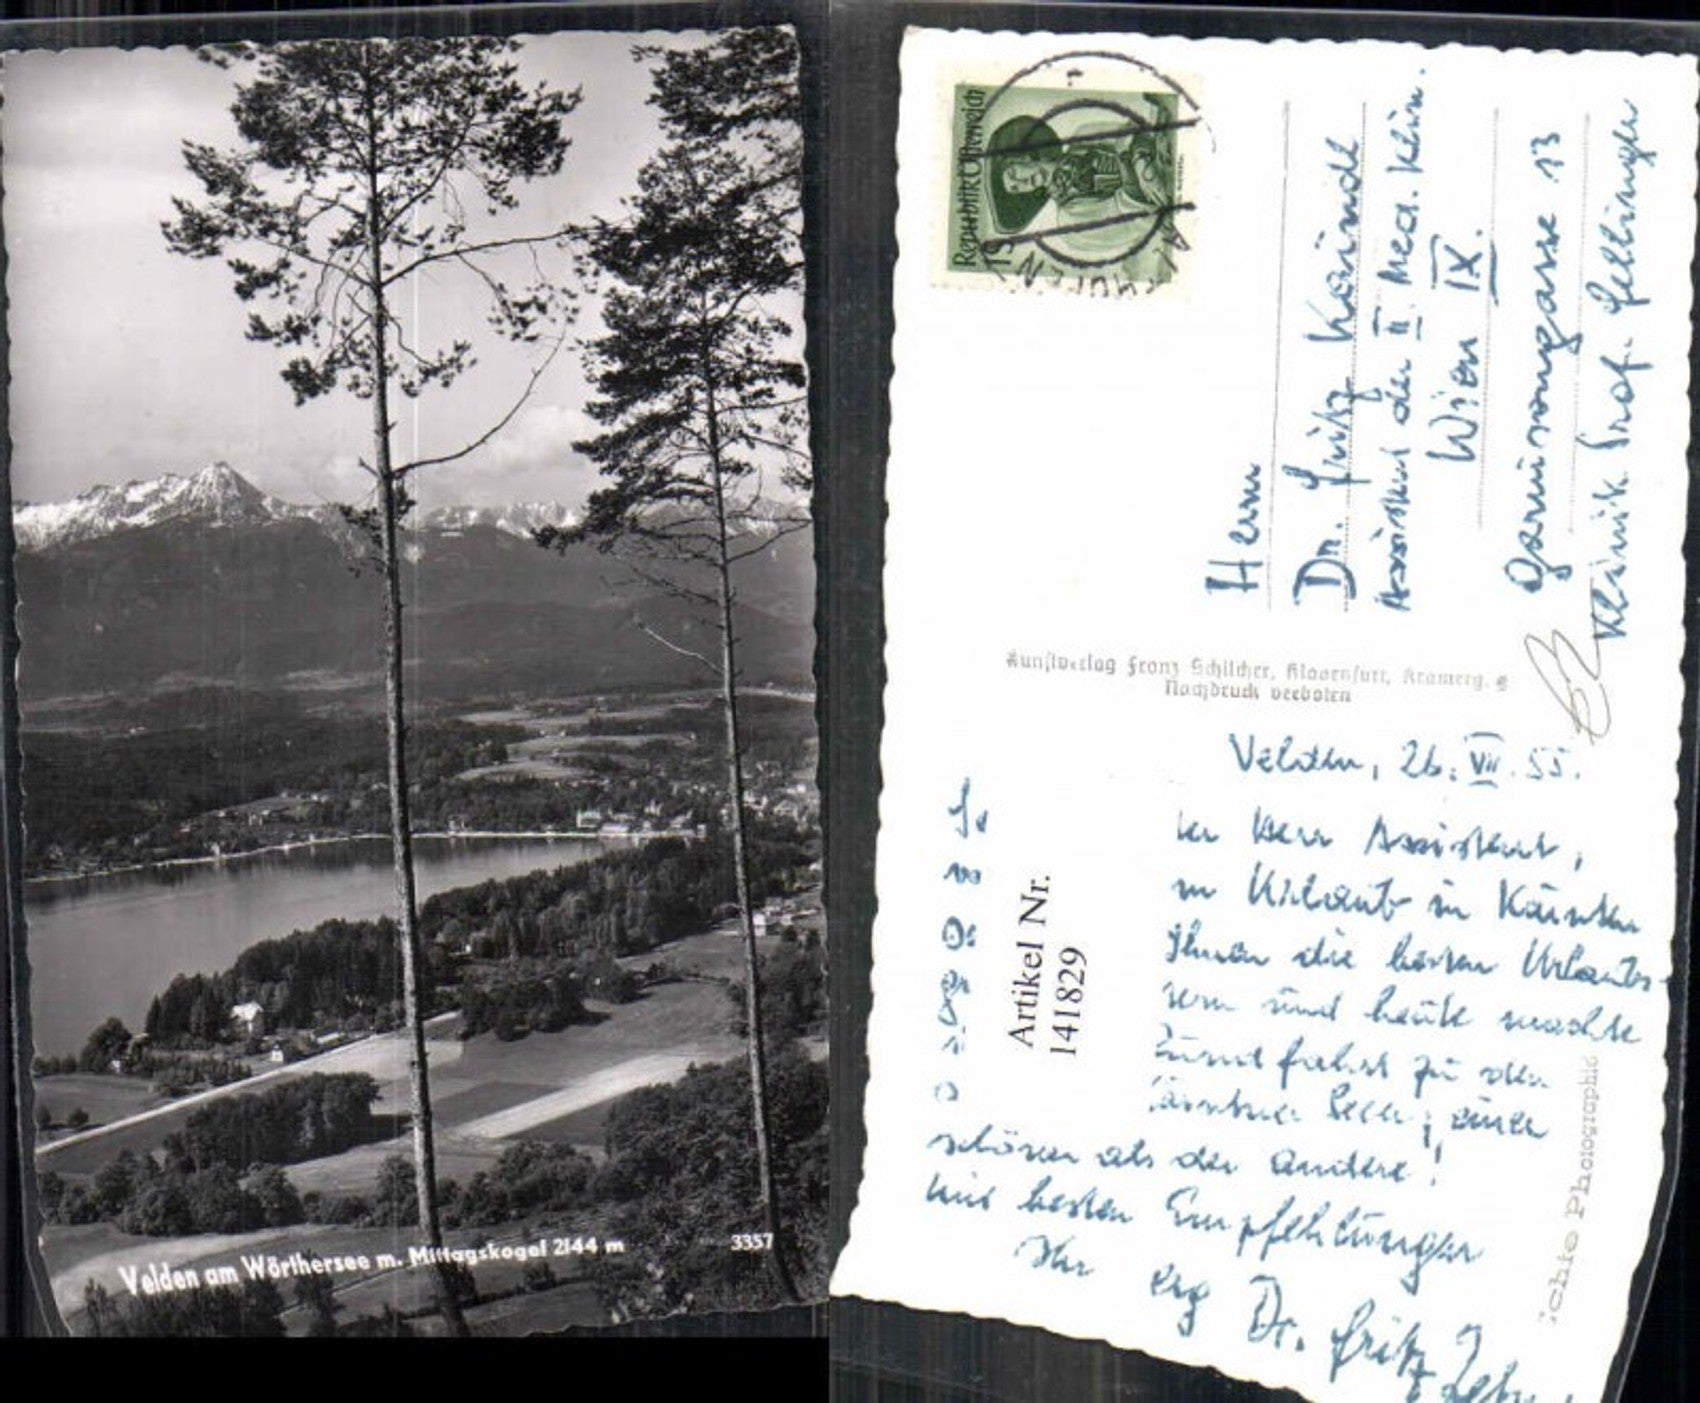 Velden am Wörthersee m. Mittagskogel 2144 m
3357
Republik Österreich
Herrn
Dr. Fritz Kaindl
Assistent der II. Med. Klin.
Wien IX.
Garnisongasse 13
Klinik Prof. Fellinger
Kunstverlag Franz Schilcher, Klagenfurt, Kramerg.
Nachdruck verboten
Velden, 26. VII. 55.
Herr Assistent,
Urlaub in Kärnten
Ihnen die besten Urlaubs-
und heute machte
fahrt zu den
Seen, einer
schöner als der andere!
Mit besten Empfehlungen
Ihr erg Dr. Fritz
Artikel Nr.
141829
ichte Photographie